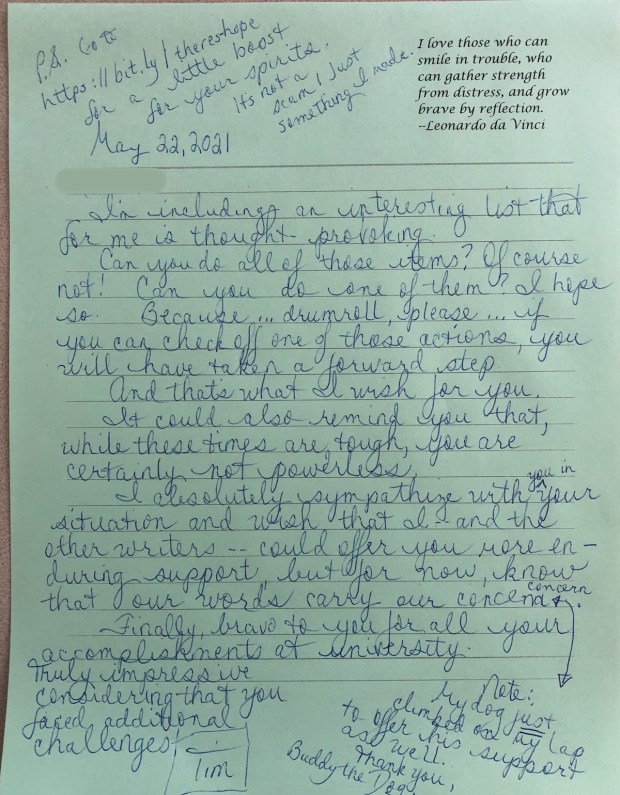 P.S. Go to
https://bit.ly/thereshope
for a little boost
for your spirits.
It's not a
scam, just
something I made.
May 22, 2021
I love those who can
smile in trouble, who
can gather strength
from distress, and grow
brave by reflection.
--Leonardo da Vinci
I'm including an interesting list that
for me is thought-provoking.
Can you do all of those items? Of course
not! Can you do one of them? I hope
so. Because ... drumroll, please ... if
you can check off one of those actions, you
will have taken a forward step.
And that's what I wish for you.
It could also remind you that,
while these times are tough, you are
certainly not powerless.
I absolutely sympathize with you in your
situation and wish that I -- and the
other writers -- could offer you more en-
during support, but for now, know
that our words carry our concern
concern.
Finally, bravo to you for all your
accomplishments at university.
Truly impressive
considering that you
faced additional
challenges!
Tim
Note:
My dog just
climbed on my lap
to offer his support
as well.
Thank you,
Buddy the Dog.